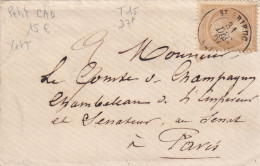 Petit CAD
15 €
T15
37
ST BRIEUC
21
DEC
A Monsieur
Le Comte de Champagny
Chambellan de l'Empereur
et Senateur, au Senat
à Paris